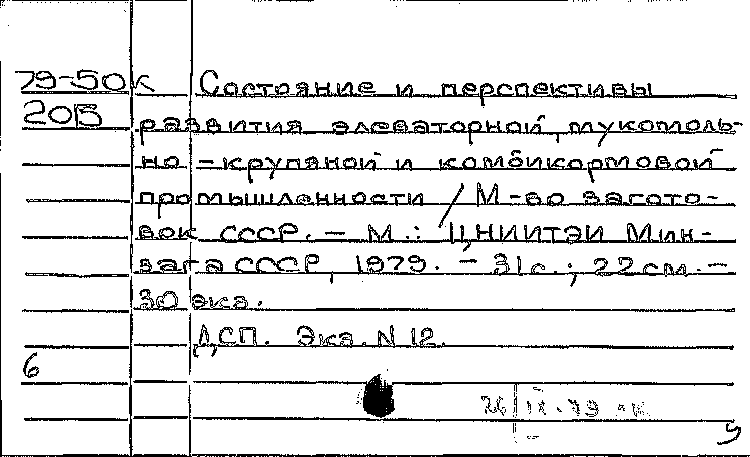 79-50к Состояние и перспективы
20В развития элеваторной, мукомоль-
но-крупяной и комбикормовой
промышленности / М-во загото-
вок СССР. - М.: ЦНИИТЭИ Мин-
зага СССР, 1979. - 31с.; 22см. -
30 экз.
ДСП. Экз. N 12.
6